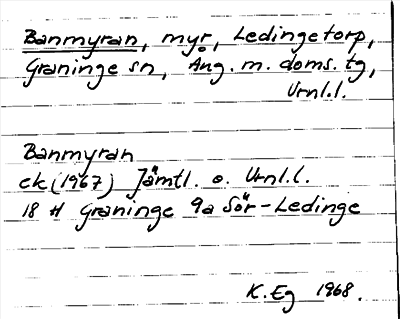 Banmyran, myr, Ledingetorp,
Graninge sn, Ång. m. doms. tg,
Vrnl.l.
Banmyran
ek (1967) Jämtl. o. Vrnl.l.
18 H Graninge 9a Sör-Ledinge
K. Eg 1968.